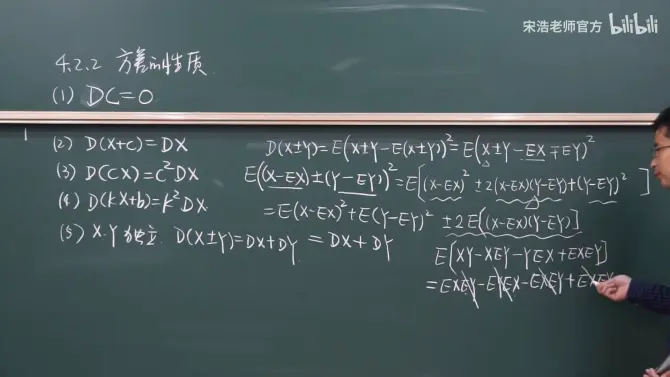 宋浩老师官方 bilibili
4.2.2 方差的性质
(1) DC=0
(2) D(X+c)=DX
(3) D(CX)=C²DX
(4) D(kX+b)=k²DX
(5) X.Y 独立. D(X±Y)=DX+DY
D(X±Y)=E(X±Y-E(X±Y))²=E(X±Y-EX∓EY)²
E((X-EX)±(Y-EY))²=E[(X-EX)²±2(X-EX)(Y-EY)+(Y-EY)²]
=E(X-EX)²+E(Y-EY)²±2E[(X-EX)(Y-EY)]
=DX+DY
E[XY-XEY-YEX+EXEY]
=EXEY-EYEX-EXEY+EXEY